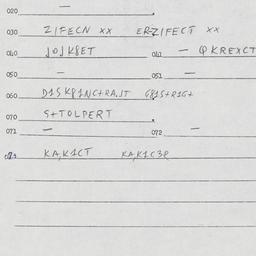 020 —
030 ZIFECN XX ERZIFECT XX
040 JOJK8ET 041 — QKREXCT
050 — 051 —
060 D1SK81NC+RAJT G81S+R1G+
070 S++TOLPERT
071 — 072 —
073 KA,K1CT KA,K1C3R